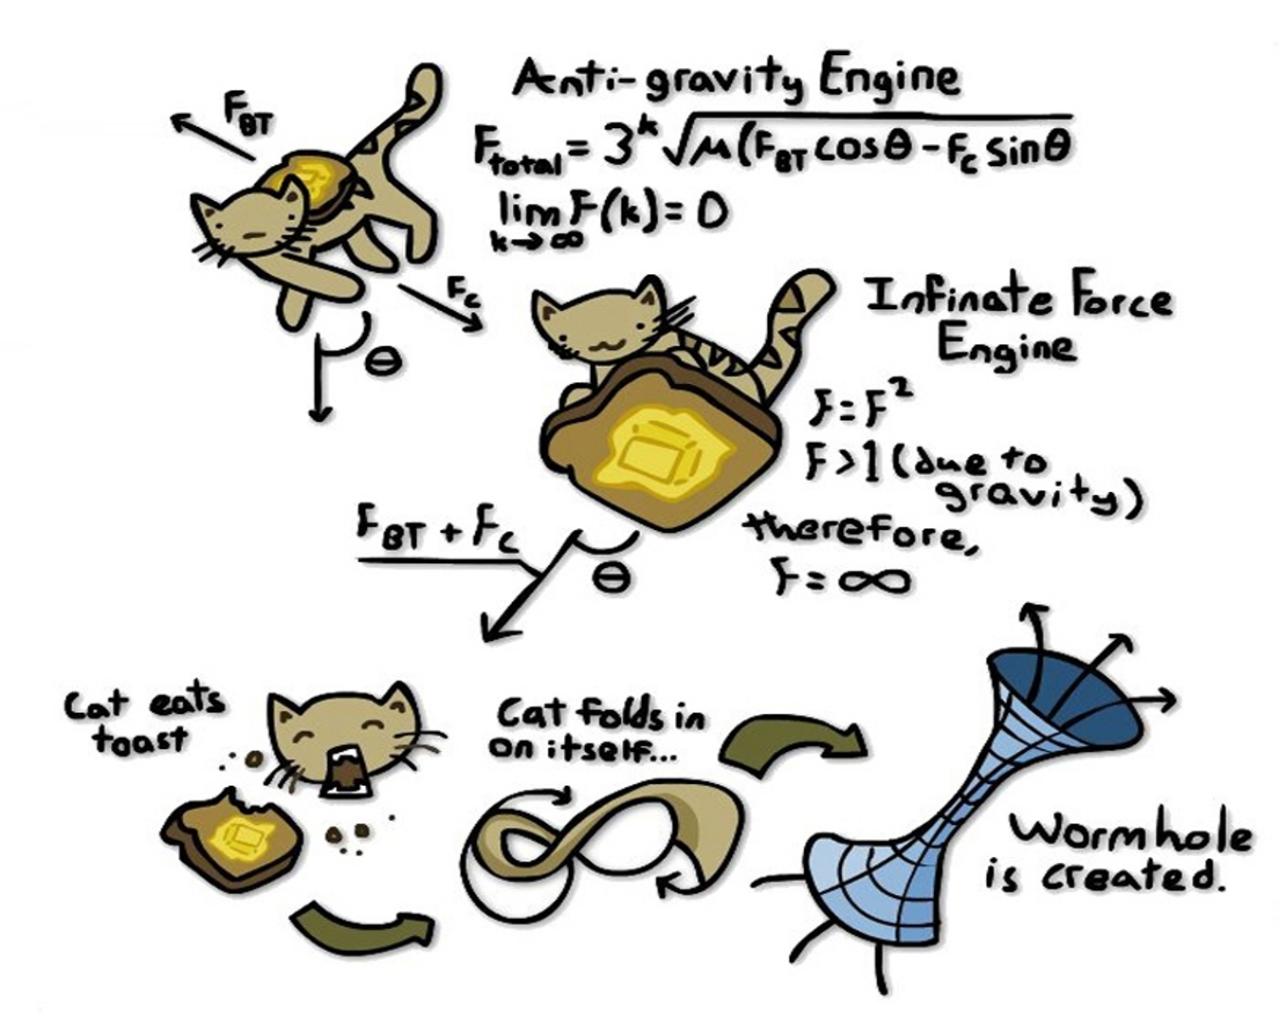 Anti-gravity Engine
F_BT
F_total = 3^k √μ(F_BT cosθ - F_c sinθ
lim F(k) = 0
k→∞
F_c
θ
Infinate Force
Engine
F = F²
F > 1 (due to
gravity)
therefore,
F = ∞
F_BT + F_c
θ
Cat eats
toast
Cat folds in
on itself...
Wormhole
is created.